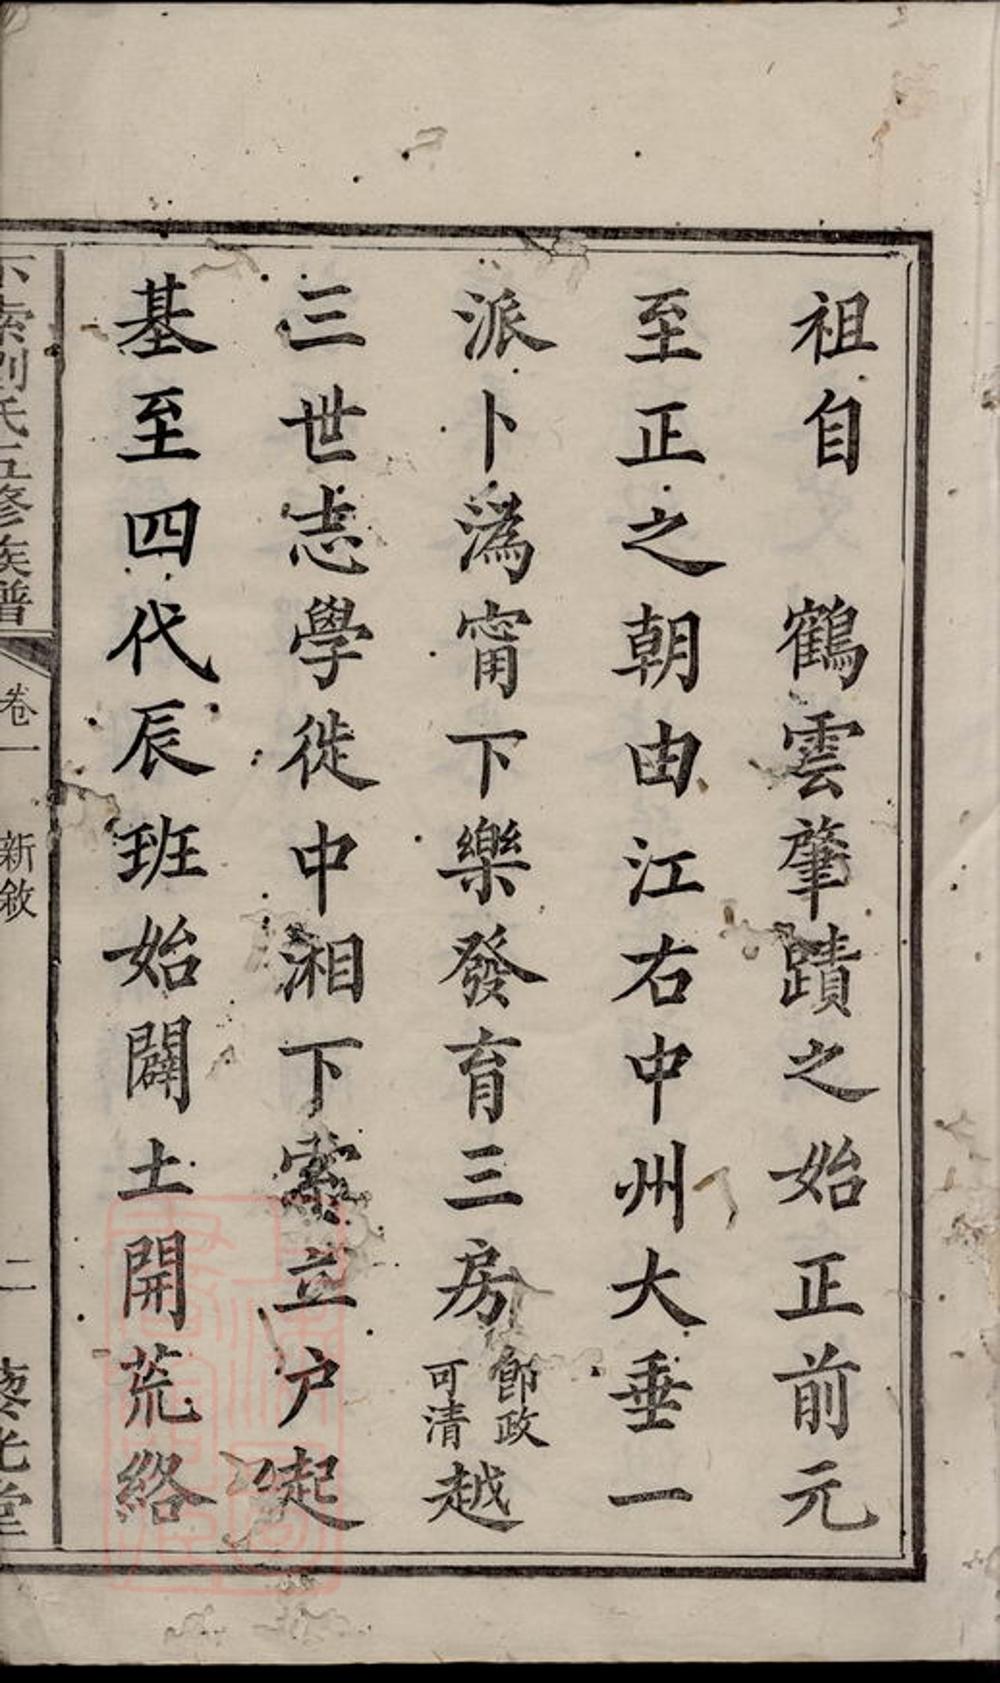 祖自　鶴雲肇蹟之始正前元
至正之朝由江右中州大垂一
派卜溈甯下樂發育三房節政可清越
三世志學徙中湘下索立户起
基至四代辰班始闢土開荒絡
下索劉氏五修族譜　卷一　新敘　二　藜光堂